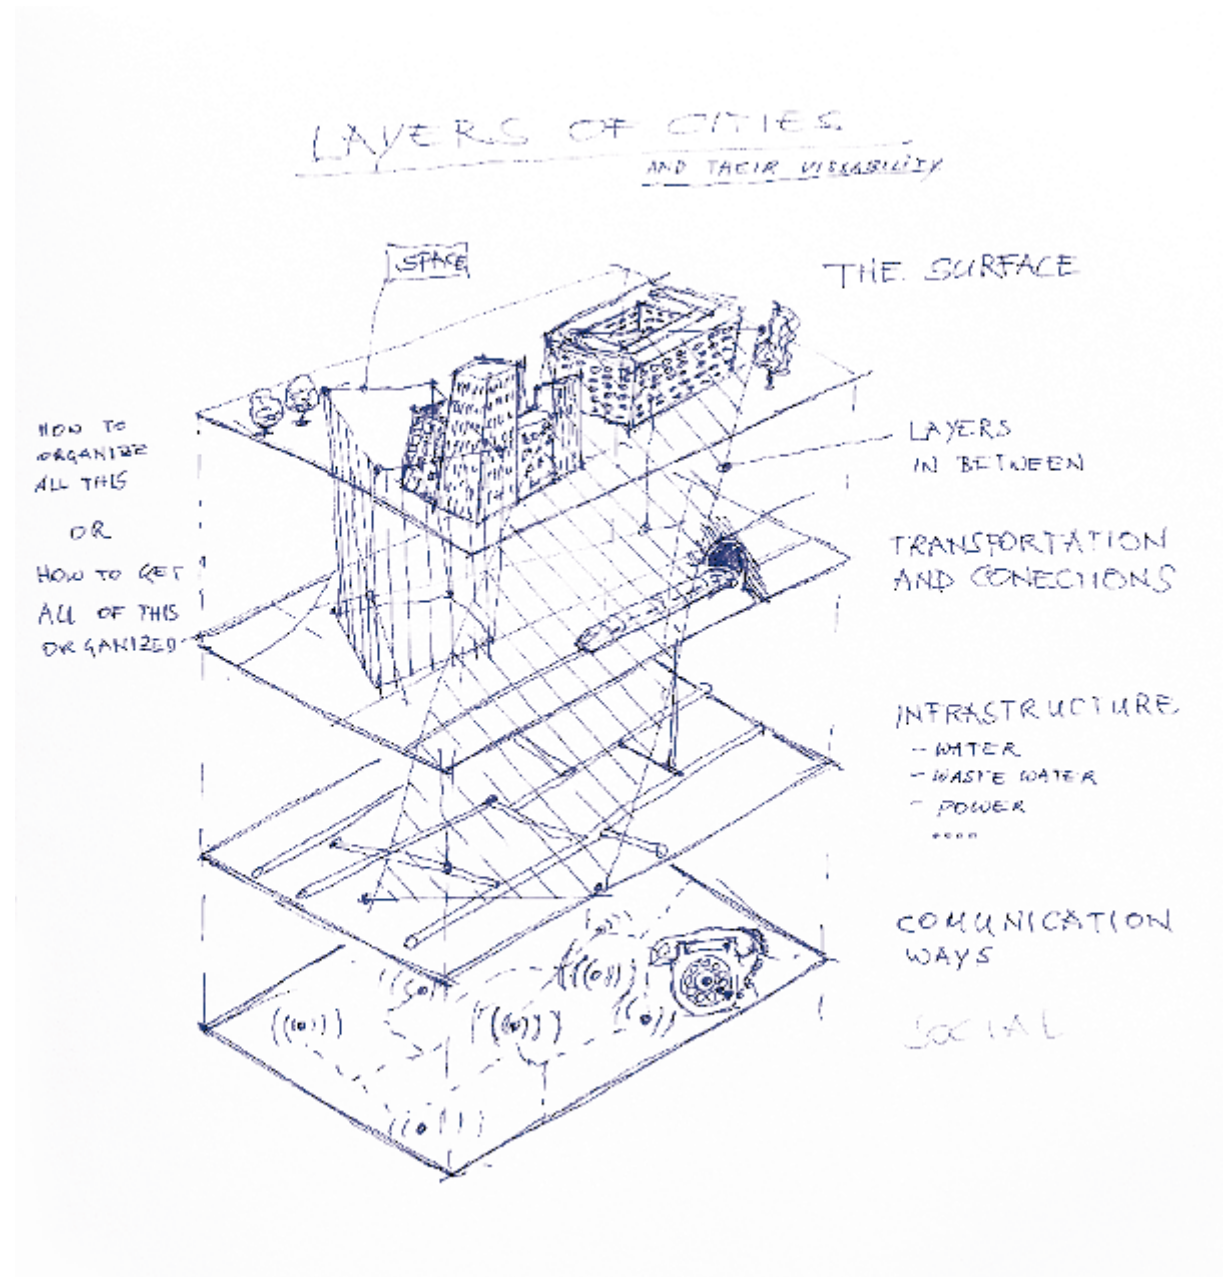 LAYERS OF CITIES
AND THEIR VISSABILITY
SPACE
THE SURFACE
HOW TO
ORGANIZE
ALL THIS
OR
HOW TO GET
ALL OF THIS
ORGANIZED
LAYERS
IN BETWEEN
TRANSPORTATION
AND CONECTIONS
INFRASTRUCTURE
- WATER
- WASTE WATER
- POWER
....
COMUNICATION
WAYS
SOCIAL